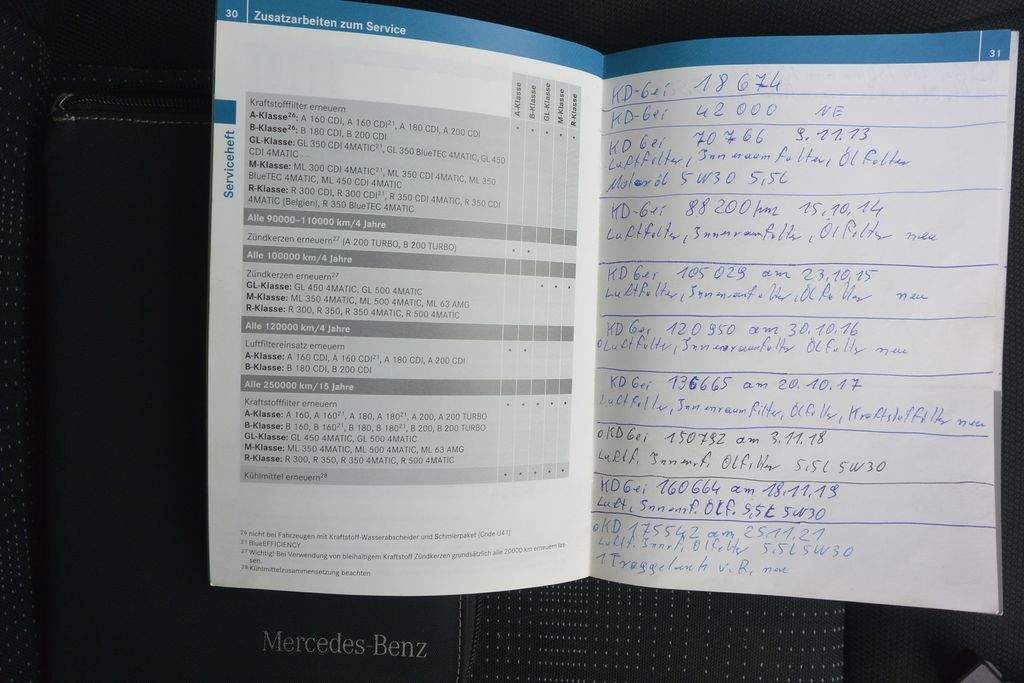 30 Zusatzarbeiten zum Service
Serviceheft
A-Klasse
B-Klasse
GL-Klasse
M-Klasse
R-Klasse
Kraftstofffilter erneuern
A-Klasse26: A 160 CDI, A 160 CDI21, A 180 CDI, A 200 CDI
B-Klasse26: B 180 CDI, B 200 CDI
GL-Klasse: GL 350 CDI 4MATIC21, GL 350 BlueTEC 4MATIC, GL 450
CDI 4MATIC
M-Klasse: ML 300 CDI 4MATIC21, ML 350 CDI 4MATIC, ML 350
BlueTEC 4MATIC, ML 450 CDI 4MATIC
R-Klasse: R 300 CDI, R 300 CDI21, R 350 CDI 4MATIC, R 350 CDI
4MATIC (Belgien), R 350 BlueTEC 4MATIC
• • • • •
Alle 90000–110000 km/4 Jahre
Zündkerzen erneuern27 (A 200 TURBO, B 200 TURBO) • •
Alle 100000 km/4 Jahre
Zündkerzen erneuern27 • • •
GL-Klasse: GL 450 4MATIC, GL 500 4MATIC
M-Klasse: ML 350 4MATIC, ML 500 4MATIC, ML 63 AMG
R-Klasse: R 300, R 350, R 350 4MATIC, R 500 4MATIC
Alle 120000 km/4 Jahre
Luftfiltereinsatz erneuern • •
A-Klasse: A 160 CDI, A 160 CDI21, A 180 CDI, A 200 CDI
B-Klasse: B 180 CDI, B 200 CDI
Alle 250000 km/15 Jahre
Kraftstofffilter erneuern • • • • •
A-Klasse: A 160, A 16021, A 180, A 18021, A 200, A 200 TURBO
B-Klasse: B 160, B 16021, B 180, B 18021, B 200, B 200 TURBO
GL-Klasse: GL 450 4MATIC, GL 500 4MATIC
M-Klasse: ML 350 4MATIC, ML 500 4MATIC, ML 63 AMG
R-Klasse: R 300, R 350, R 350 4MATIC, R 500 4MATIC
Kühlmittel erneuern28 • • • • •
26 nicht bei Fahrzeugen mit Kraftstoff-Wasserabscheider und Schmierpaket (Code U41)
21 BlueEFFICIENCY
27 Wichtig! Bei Verwendung von bleihaltigem Kraftstoff Zündkerzen grundsätzlich alle 20000 km erneuern las-
sen.
28 Kühlmittelzusammensetzung beachten
31
KD-bei 18 674
KD-bei 42 000 NE
KD bei 70 766 9.11.13
Luftfilter, Innenraumfilter, Ölfilter
Motoröl 5W30 5,5L
KD-bei 88 200 km 15.10.14
Luftfilter, Innenraumfilter, Ölfilter neu
KD bei 105 029 am 23.10.15
Luftfilter, Innenraumfilter, Ölfilter neu
KD bei 120 950 am 30.10.16
Luftfilter, Innenraumfilter Ölfilter neu
KD bei 136665 am 20.10.17
Luftfilter, Innenraumfilter, Ölfilter, Kraftstofffilter neu
KD bei 150792 am 3.11.18
Luftf. Innenf. Ölfilter 5,5L 5W30
KD bei 160664 am 18.11.19
Luft, Innenf. Ölf. 5,5L 5W30
KD 175542 am 25.11.21
Luftf. Innenf. Ölfilter 5,5L 5W30
1 Traggelenk v.R. neu
Mercedes-Benz